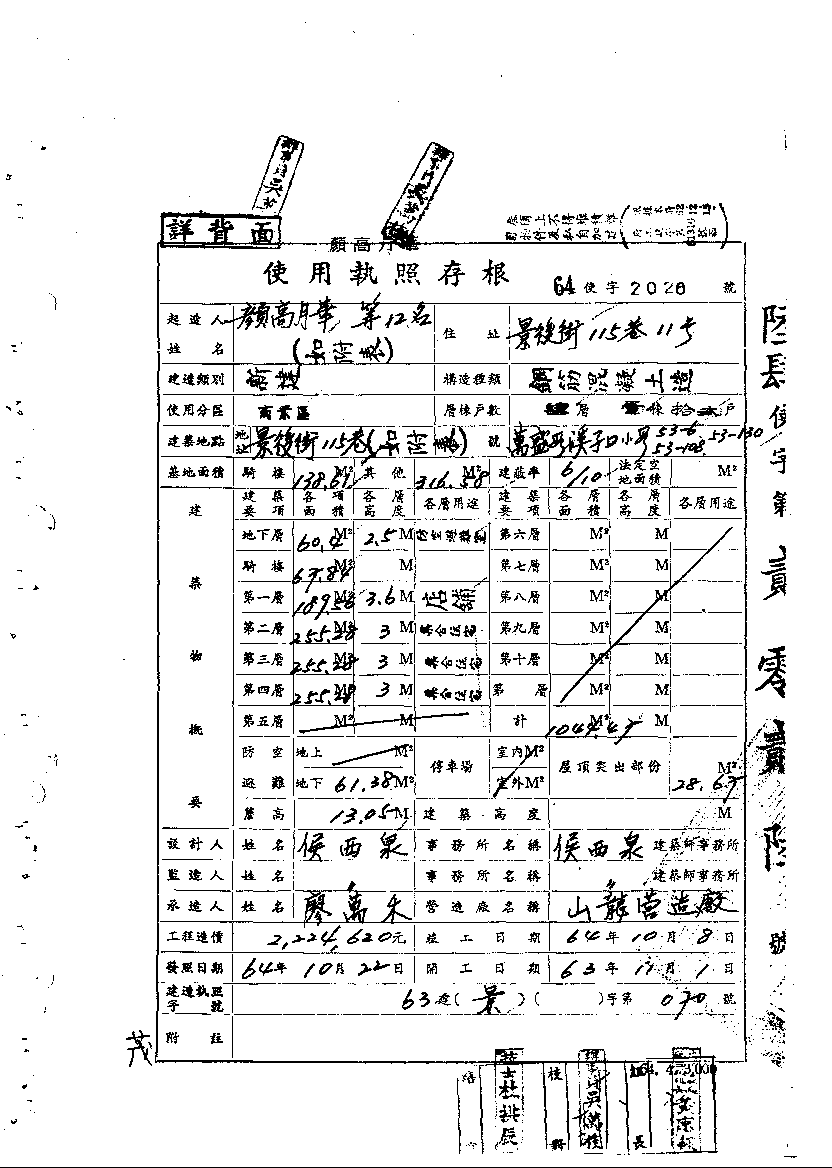 詳背面
顏高月華
使用執照存根
64 使字 2026 號
起造人姓名 顏高月華 等12名 (如附表) 住址 景後街115巷11号
建造類別 新建 構造種類 鋼筋混凝土造
使用分區 商業區 層棟戶數 層 壹棟 拾 戶
建築地點 地址 景後街115巷(如附表)號 萬盛段溪子口小段 53-6 53-108 53-130
基地面積 騎樓 138.69 M² 其他 316.58 M² 建蔽率 6/10 法定空地面積 M²
建築物概要
建築要項 各項面積 各層高度 各層用途 建築要項 各層面積 各層高度 各層用途
地下層 60.4 M² 2.5 M 第六層 M² M
騎樓 67.84 M² M 第七層 M² M
第一層 189.56 M² 3.6 M 店鋪 第八層 M² M
第二層 255.28 M² 3 M 集合住宅 第九層 M² M
第三層 255.28 M² 3 M 集合住宅 第十層 M² M
第四層 255.28 M² 3 M 集合住宅 第 層 M² M
第五層 M² M 計 1044.47 M² M
防空避難 地上 M² 停車場 室內M² 屋頂突出部份 M²
地下 61.38 M² 室外M² 28.63
簷高 13.05 M 建築高度 M
設計人 姓名 侯西泉 事務所名稱 侯西泉 建築師事務所
監造人 姓名 〃 事務所名稱 〃 建築師事務所
承造人 姓名 廖萬禾 營造廠名稱 山龍营造廠
工程造價 2,224,620元 竣工日期 64年10月8日
發照日期 64年10月22日 開工日期 63年11月1日
建造執照字號 63造(景)( )字第 070 號
附註
茂
陸肆使字第貳零貳陸號
技士杜拱辰
核
長
64. 4. 3,000